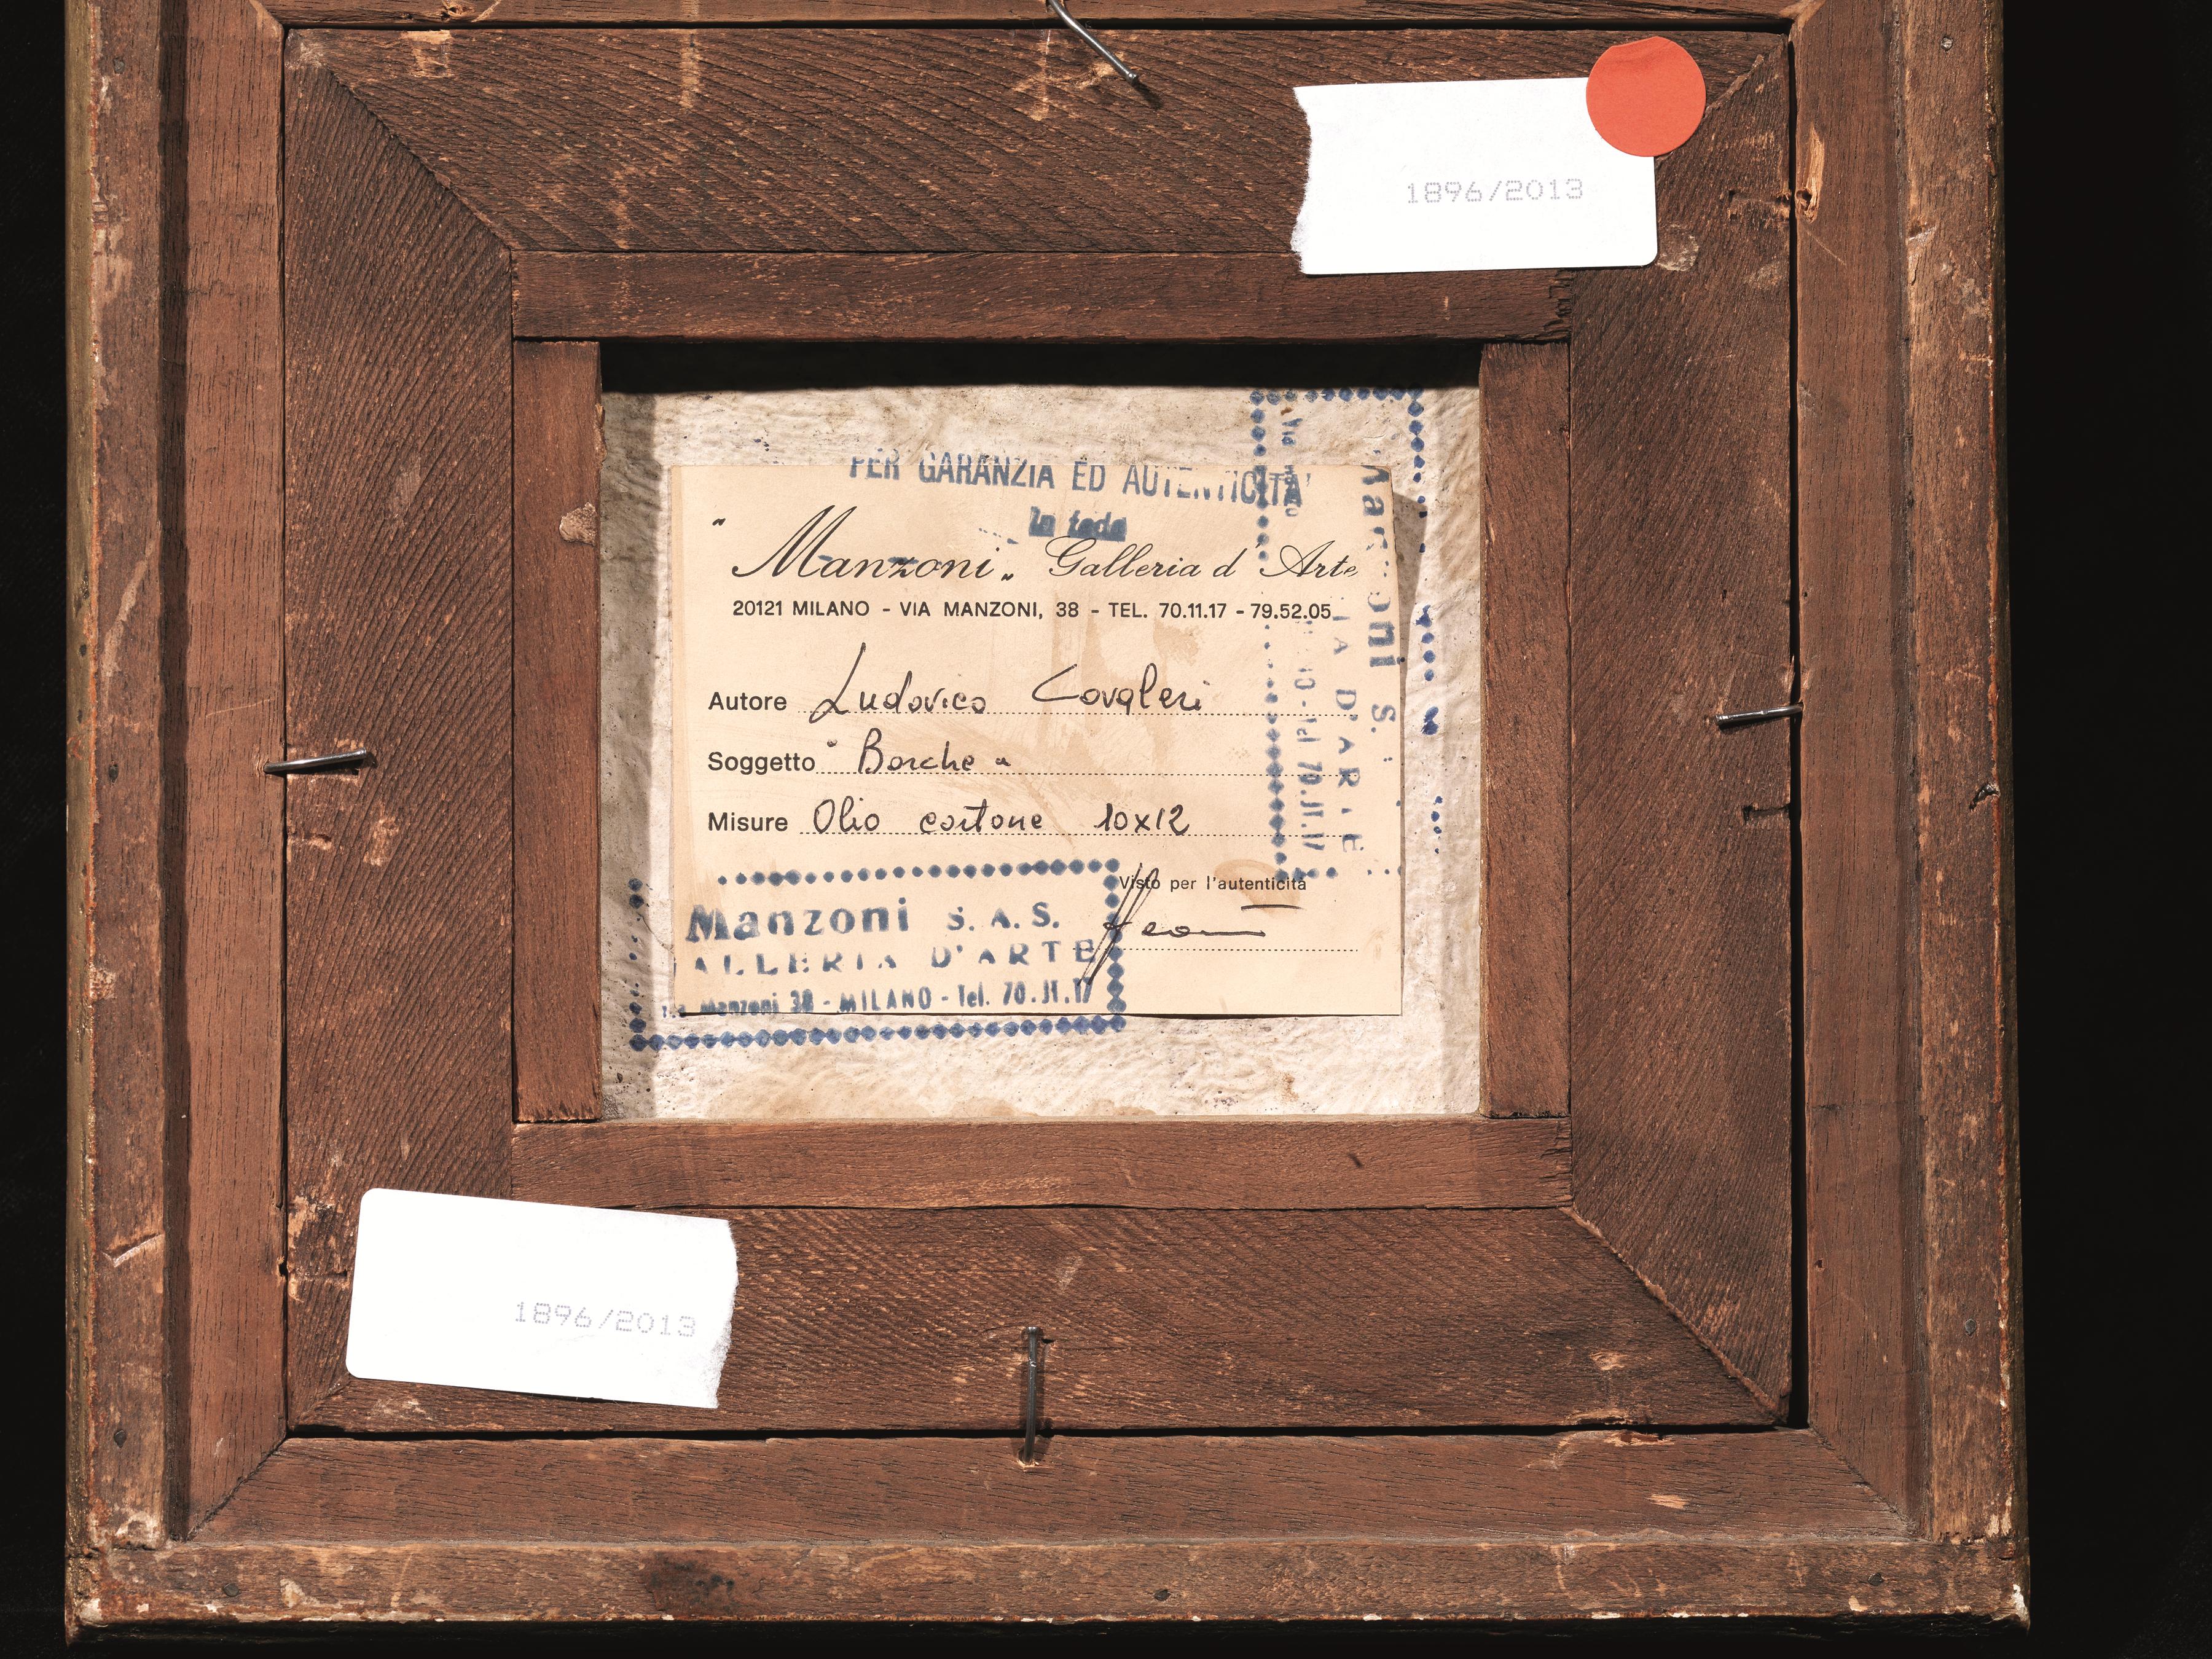 1896/2013
PER GARANZIA ED AUTENTICITA'
In fede
"Manzoni„ Galleria d'Arte
20121 MILANO - VIA MANZONI, 38 - TEL. 70.11.17 - 79.52.05
Autore Ludovico Cavaleri
Soggetto " Barche "
Misure Olio cartone 10x12
Visto per l'autenticità
Manzoni S.A.S.
ALLERIA D'ARTE
Manzoni 38 - MILANO - Tel. 70.11.17
Manzoni S.
IA D'ARTE
70.11.17
1896/2013